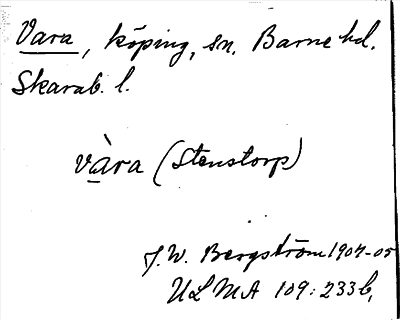 Vara, köping, sn, Barne hd.
Skarab. l.
vàra (Stenstorp)
J. W. Bergström 1904-05
ULMA 109:233b,